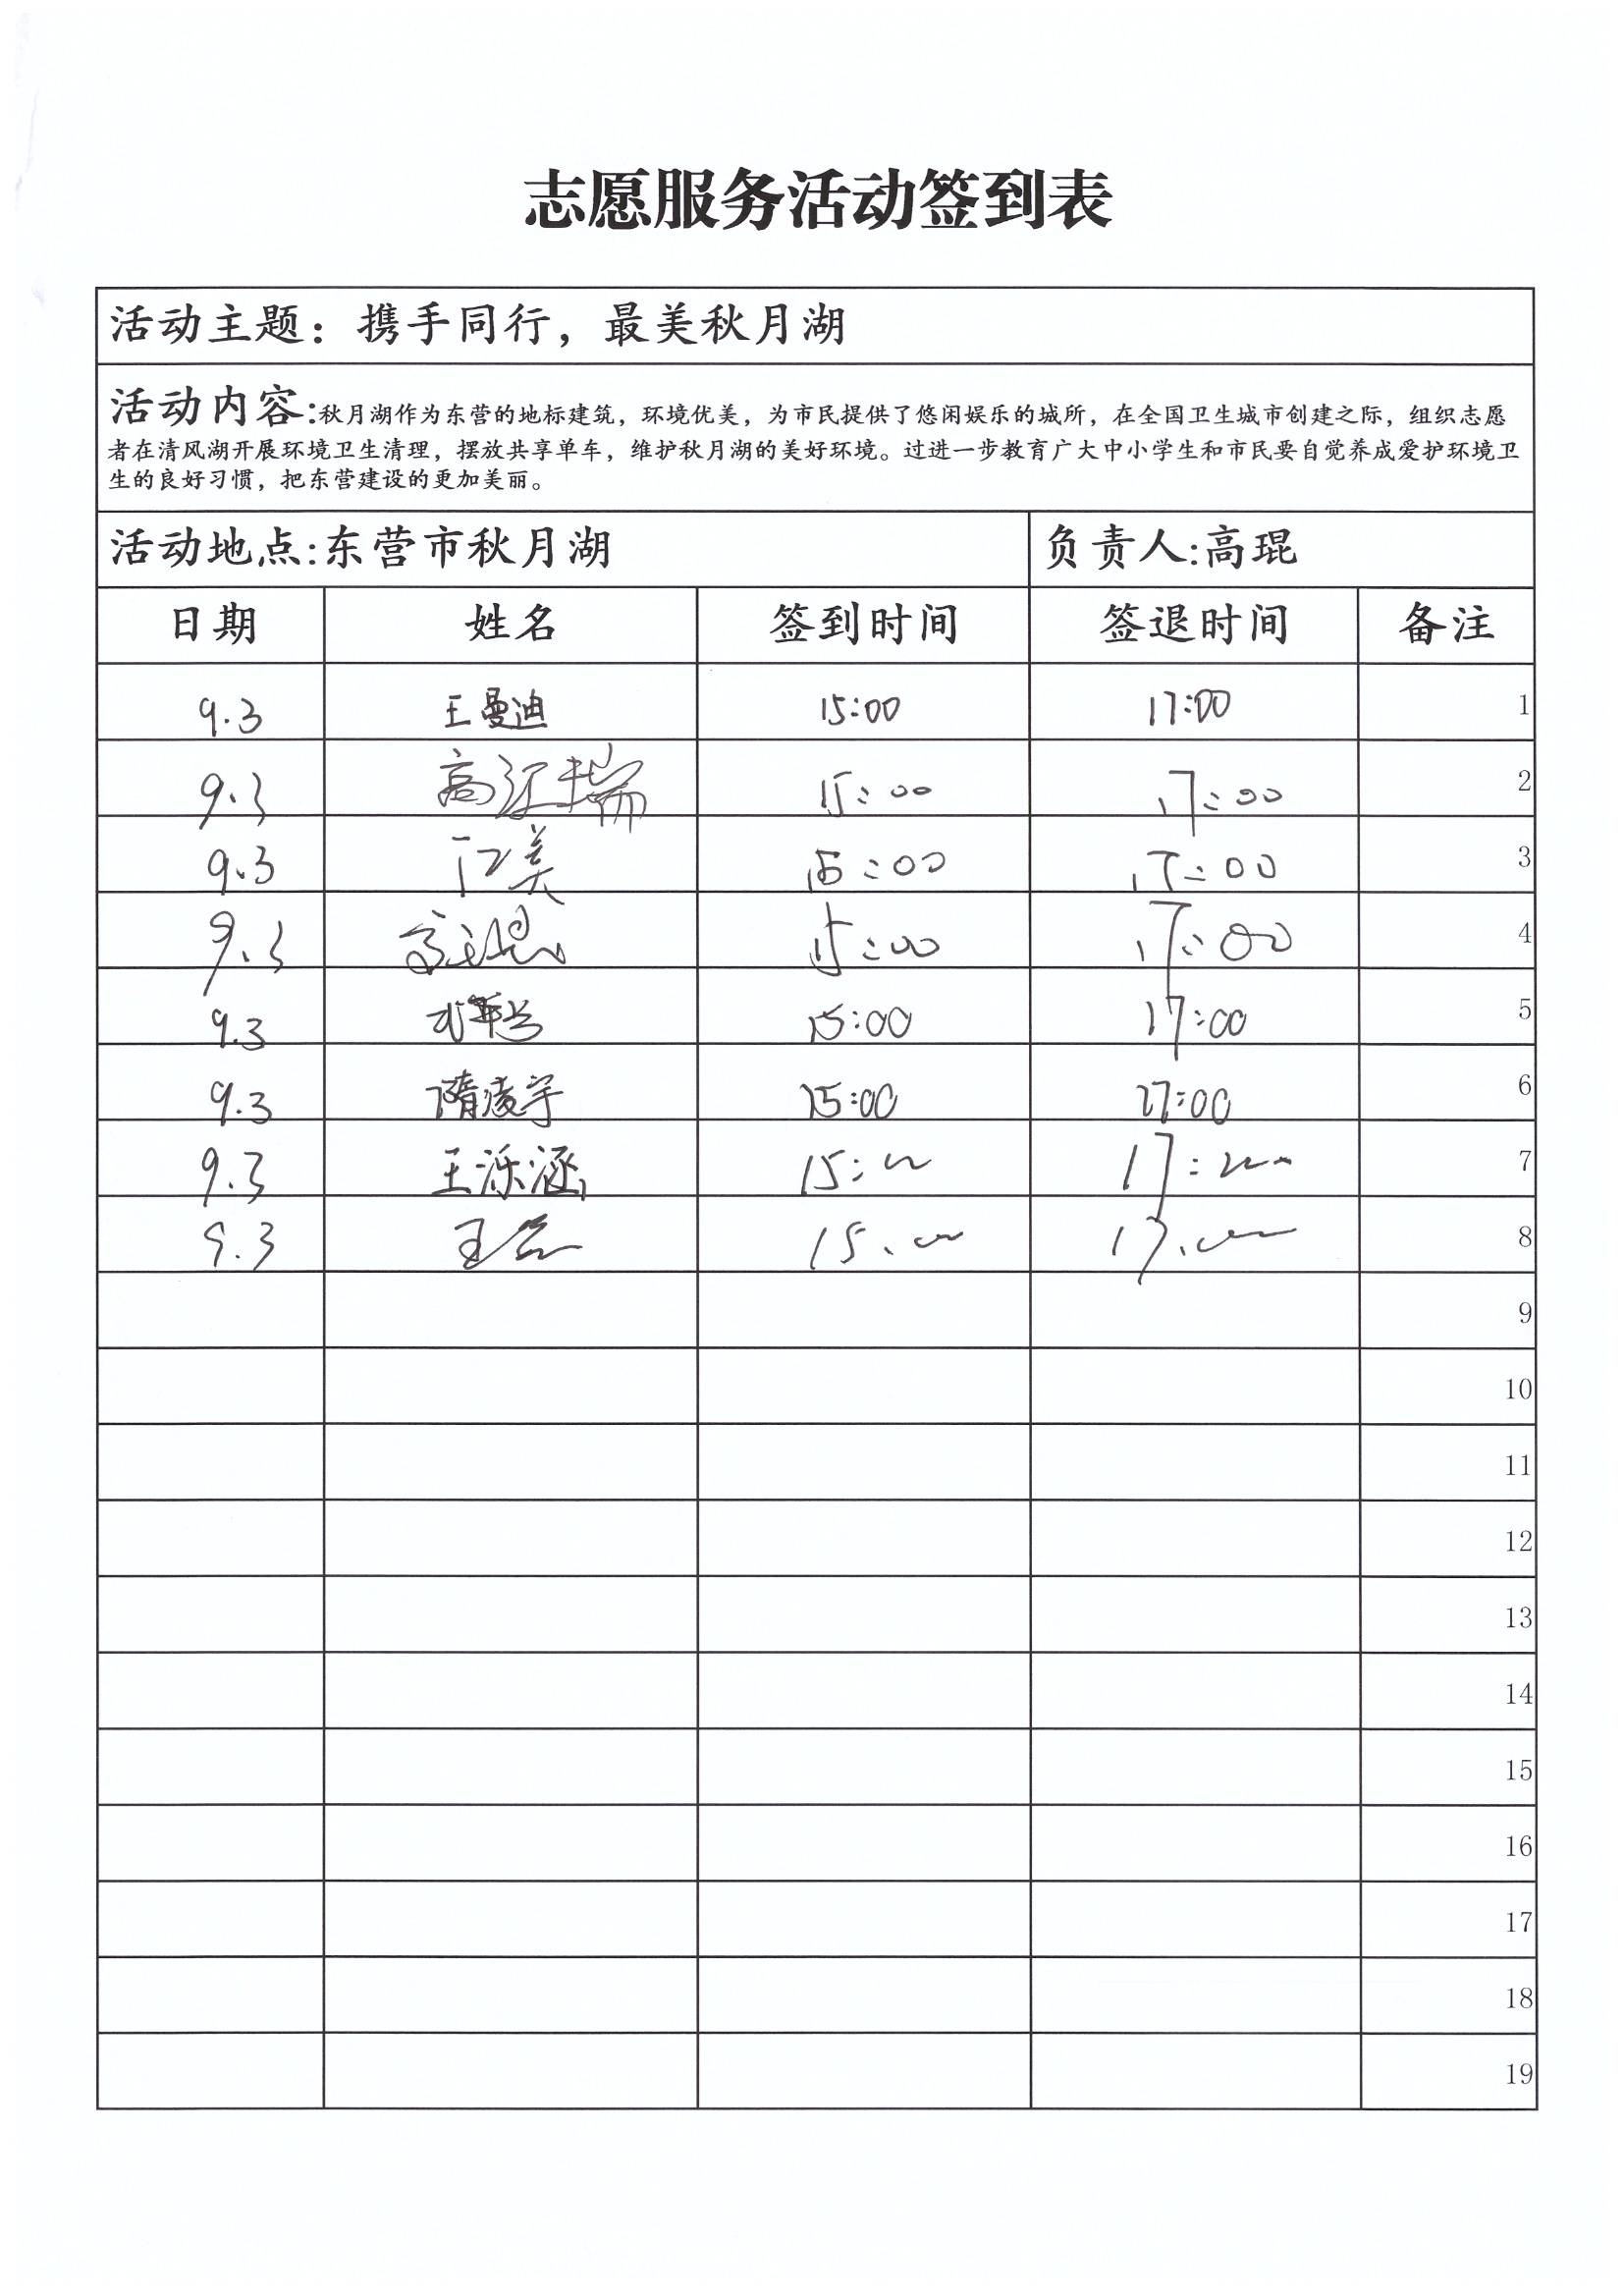 志愿服务活动签到表
活动主题：携手同行，最美秋月湖
活动内容:秋月湖作为东营的地标建筑，环境优美，为市民提供了悠闲娱乐的城所，在全国卫生城市创建之际，组织志愿
者在清风湖开展环境卫生清理，摆放共享单车，维护秋月湖的美好环境。过进一步教育广大中小学生和市民要自觉养成爱护环境卫
生的良好习惯，把东营建设的更加美丽。
活动地点:东营市秋月湖 负责人:高琨
日期 姓名 签到时间 签退时间 备注
9.3 王曼迪 15:00 17:00 1
9.3 15:00 17:00 2
9.3 15:00 17:00 3
9.3 高琨 15:00 17:00 4
9.3 15:00 17:00 5
9.3 隋凌宇 15:00 17:00 6
9.3 王泺涵 15:00 17:00 7
9.3 8
9
10
11
12
13
14
15
16
17
18
19